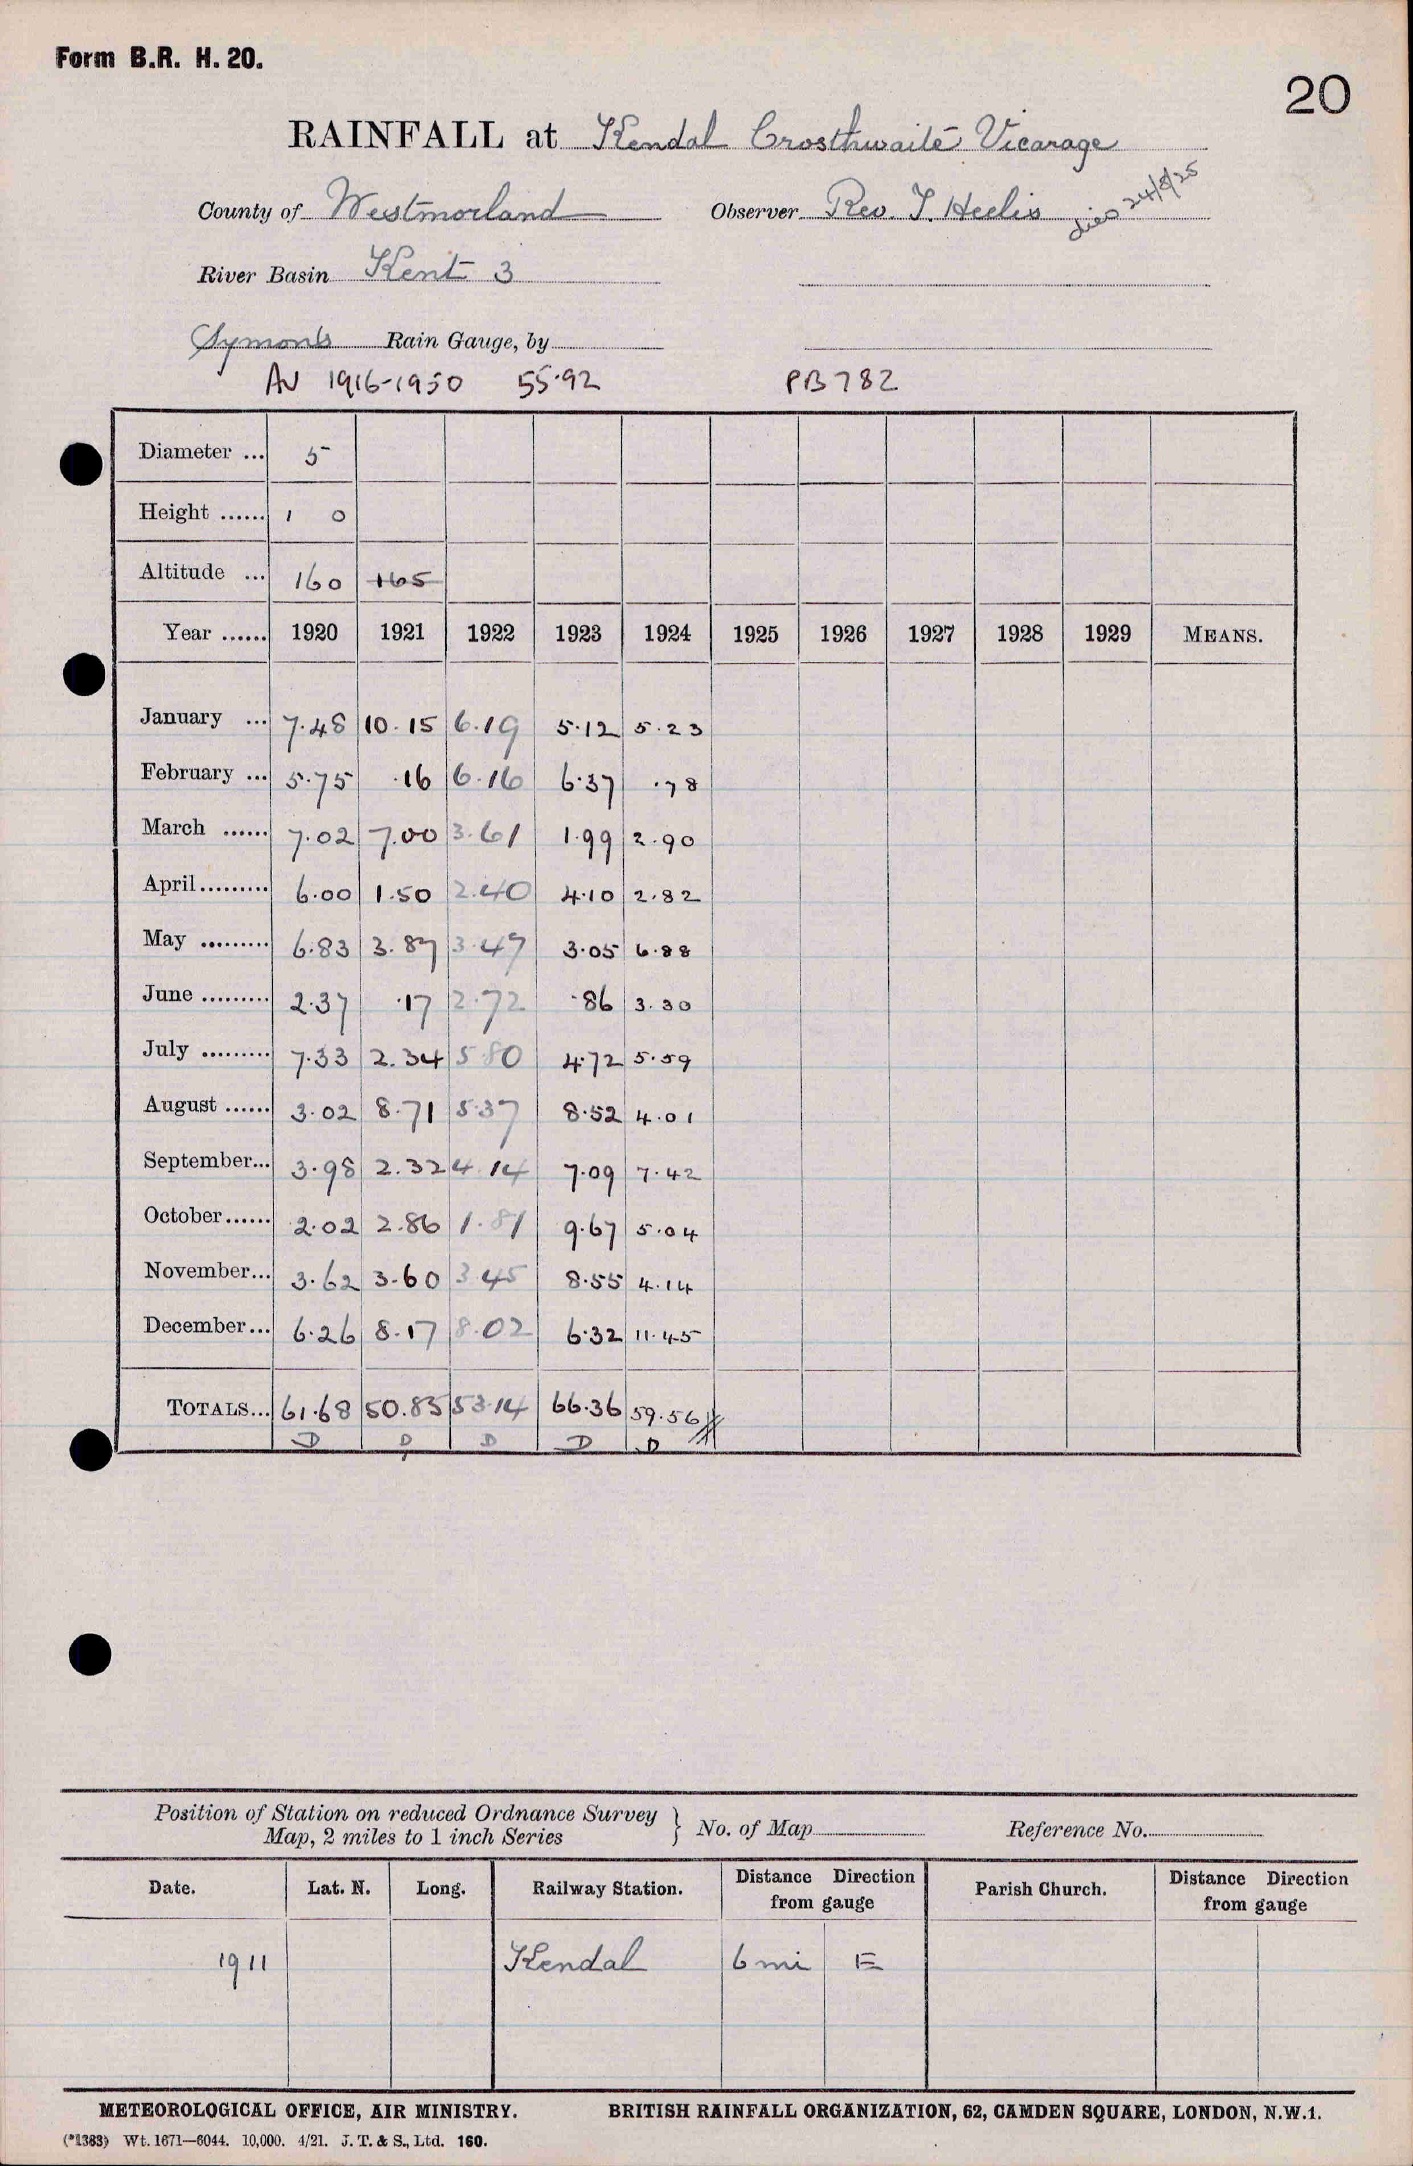 Form B.R. H. 20.
20
RAINFALL at Kendal Crosthwaite Vicarage
County of Westmorland Observer Rev. T. Heelis died 24/8/25
River Basin Kent 3
Symons Rain Gauge, by
AV 1916-1950 55.92 PB782
Diameter ... 5
Height ...... 1 0
Altitude ... 160 165
Year ...... 1920 1921 1922 1923 1924 1925 1926 1927 1928 1929 MEANS.
January ... 7.48 10.15 6.19 5.12 5.23
February ... 5.75 .16 6.16 6.37 .78
March ...... 7.02 7.00 3.61 1.99 2.90
April......... 6.00 1.50 2.40 4.10 2.82
May ......... 6.83 3.87 3.47 3.05 6.88
June ......... 2.37 .17 2.72 .86 3.30
July ......... 7.33 2.34 5.80 4.72 5.59
August ...... 3.02 8.71 5.37 8.52 4.01
September... 3.98 2.32 4.14 7.09 7.42
October...... 2.02 2.86 1.81 9.67 5.04
November... 3.62 3.60 3.45 8.55 4.14
December... 6.26 8.17 8.02 6.32 11.45
TOTALS... 61.68 50.85 53.14 66.36 59.56
D D D D D
Position of Station on reduced Ordnance Survey
Map, 2 miles to 1 inch Series } No. of Map Reference No.
Date. Lat. N. Long. Railway Station. Distance Direction from gauge Parish Church. Distance Direction from gauge
1911 Kendal 6 mi E
METEOROLOGICAL OFFICE, AIR MINISTRY. BRITISH RAINFALL ORGANIZATION, 62, CAMDEN SQUARE, LONDON, N.W.1.
(*1383) Wt. 1671—6044. 10,000. 4/21. J. T. & S., Ltd. 160.